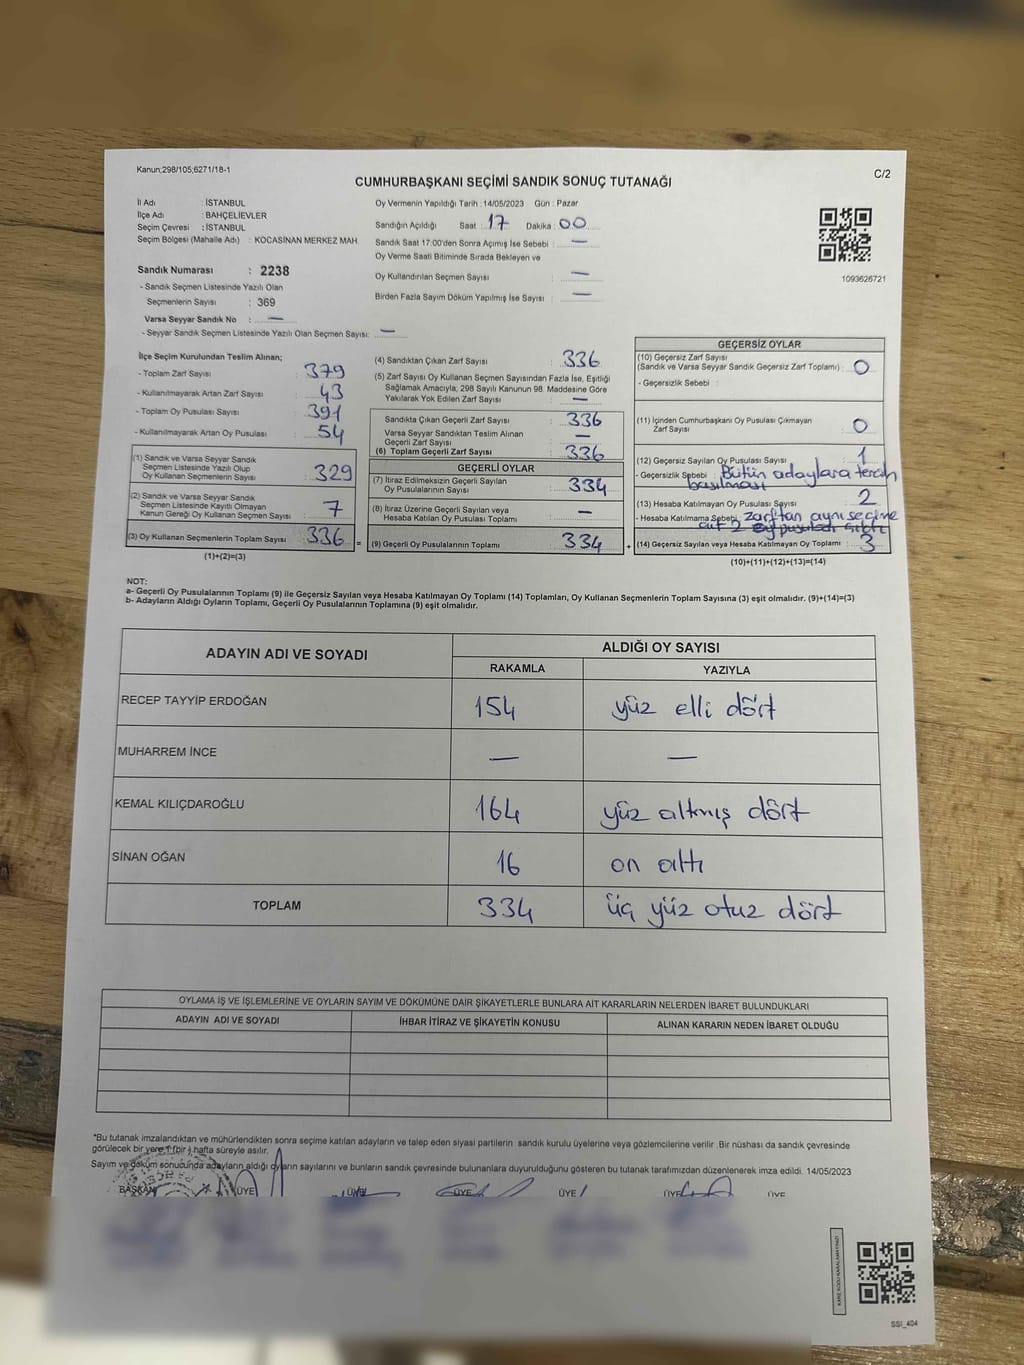 Kanun;298/105;6271/18-1
C/2
CUMHURBAŞKANI SEÇİMİ SANDIK SONUÇ TUTANAĞI
İl Adı : İSTANBUL
İlçe Adı : BAHÇELİEVLER
Seçim Çevresi : İSTANBUL
Seçim Bölgesi (Mahalle Adı) : KOCASİNAN MERKEZ MAH.
Sandık Numarası : 2238
- Sandık Seçmen Listesinde Yazılı Olan
Seçmenlerin Sayısı : 369
Varsa Seyyar Sandık No : —
- Seyyar Sandık Seçmen Listesinde Yazılı Olan Seçmen Sayısı: —
Oy Vermenin Yapıldığı Tarih : 14/05/2023 Gün : Pazar
Sandığın Açıldığı Saat : 17 Dakika : 00
Sandık Saat 17:00'den Sonra Açımış İse Sebebi : —
Oy Verme Saati Bitiminde Sırada Bekleyen ve
Oy Kullandırılan Seçmen Sayısı : —
Birden Fazla Sayım Döküm Yapılmış İse Sayısı : —
1093626721
İlçe Seçim Kurulundan Teslim Alınan;
- Toplam Zarf Sayısı : 379
- Kullanılmayarak Artan Zarf Sayısı : 43
- Toplam Oy Pusulası Sayısı : 391
- Kullanılmayarak Artan Oy Pusulası : 54
(1) Sandık ve Varsa Seyyar Sandık
Seçmen Listesinde Yazılı Olup
Oy Kullanan Seçmenlerin Sayısı : 329
(2) Sandık ve Varsa Seyyar Sandık
Seçmen Listesinde Kayıtlı Olmayan
Kanun Gereği Oy Kullanan Seçmen Sayısı : 7
(3) Oy Kullanan Seçmenlerin Toplam Sayısı : 336 =
(1)+(2)=(3)
(4) Sandıktan Çıkan Zarf Sayısı : 336
(5) Zarf Sayısı Oy Kullanan Seçmen Sayısından Fazla İse, Eşitliği
Sağlamak Amacıyla; 298 Sayılı Kanunun 98. Maddesine Göre
Yakılarak Yok Edilen Zarf Sayısı : —
Sandıkta Çıkan Geçerli Zarf Sayısı : 336
Varsa Seyyar Sandıktan Teslim Alınan
Geçerli Zarf Sayısı : —
(6) Toplam Geçerli Zarf Sayısı : 336
GEÇERLİ OYLAR
(7) İtiraz Edilmeksizin Geçerli Sayılan
Oy Pusulalarının Sayısı : 334
(8) İtiraz Üzerine Geçerli Sayılan veya
Hesaba Katılan Oy Pusulası Toplamı : —
(9) Geçerli Oy Pusulalarının Toplamı : 334 +
GEÇERSİZ OYLAR
(10) Geçersiz Zarf Sayısı
(Sandık ve Varsa Seyyar Sandık Geçersiz Zarf Toplamı) : 0
- Geçersizlik Sebebi :
(11) İçinden Cumhurbaşkanı Oy Pusulası Çıkmayan
Zarf Sayısı : 0
(12) Geçersiz Sayılan Oy Pusulası Sayısı : 1
- Geçersizlik Sebebi : Bütün adaylara tercih
basılması
(13) Hesaba Katılmayan Oy Pusulası Sayısı : 2
- Hesaba Katılmama Sebebi : zarftan aynı seçime
ait 2 oy pusulası çıktı
(14) Geçersiz Sayılan veya Hesaba Katılmayan Oy Toplamı : 3
(10)+(11)+(12)+(13)=(14)
NOT:
a- Geçerli Oy Pusulalarının Toplamı (9) ile Geçersiz Sayılan veya Hesaba Katılmayan Oy Toplamı (14) Toplamları, Oy Kullanan Seçmenlerin Toplam Sayısına (3) eşit olmalıdır. (9)+(14)=(3)
b- Adayların Aldığı Oyların Toplamı, Geçerli Oy Pusulalarının Toplamına (9) eşit olmalıdır.
ADAYIN ADI VE SOYADI ALDIĞI OY SAYISI
RAKAMLA YAZIYLA
RECEP TAYYİP ERDOĞAN 154 yüz elli dört
MUHARREM İNCE — —
KEMAL KILIÇDAROĞLU 164 yüz altmış dört
SİNAN OĞAN 16 on altı
TOPLAM 334 üç yüz otuz dört
OYLAMA İŞ VE İŞLEMLERİNE VE OYLARIN SAYIM VE DÖKÜMÜNE DAİR ŞİKAYETLERLE BUNLARA AİT KARARLARIN NELERDEN İBARET BULUNDUKLARI
ADAYIN ADI VE SOYADI İHBAR İTİRAZ VE ŞİKAYETİN KONUSU ALINAN KARARIN NEDEN İBARET OLDUĞU
*Bu tutanak imzalandıktan ve mühürlendikten sonra seçime katılan adayların ve talep eden siyasi partilerin sandık kurulu üyelerine veya gözlemcilerine verilir. Bir nüshası da sandık çevresinde
görülecek bir yere 1 (bir) hafta süreyle asılır.
Sayım ve döküm sonucunda adayların aldığı oyların sayılarını ve bunların sandık çevresinde bulunanlara duyurulduğunu gösteren bu tutanak tarafımızdan düzenlenerek imza edildi. 14/05/2023
BAŞKAN ÜYE ÜYE ÜYE ÜYE ÜYE ÜYE
KARE KODU KARALAMAYINIZ!
SSI_404